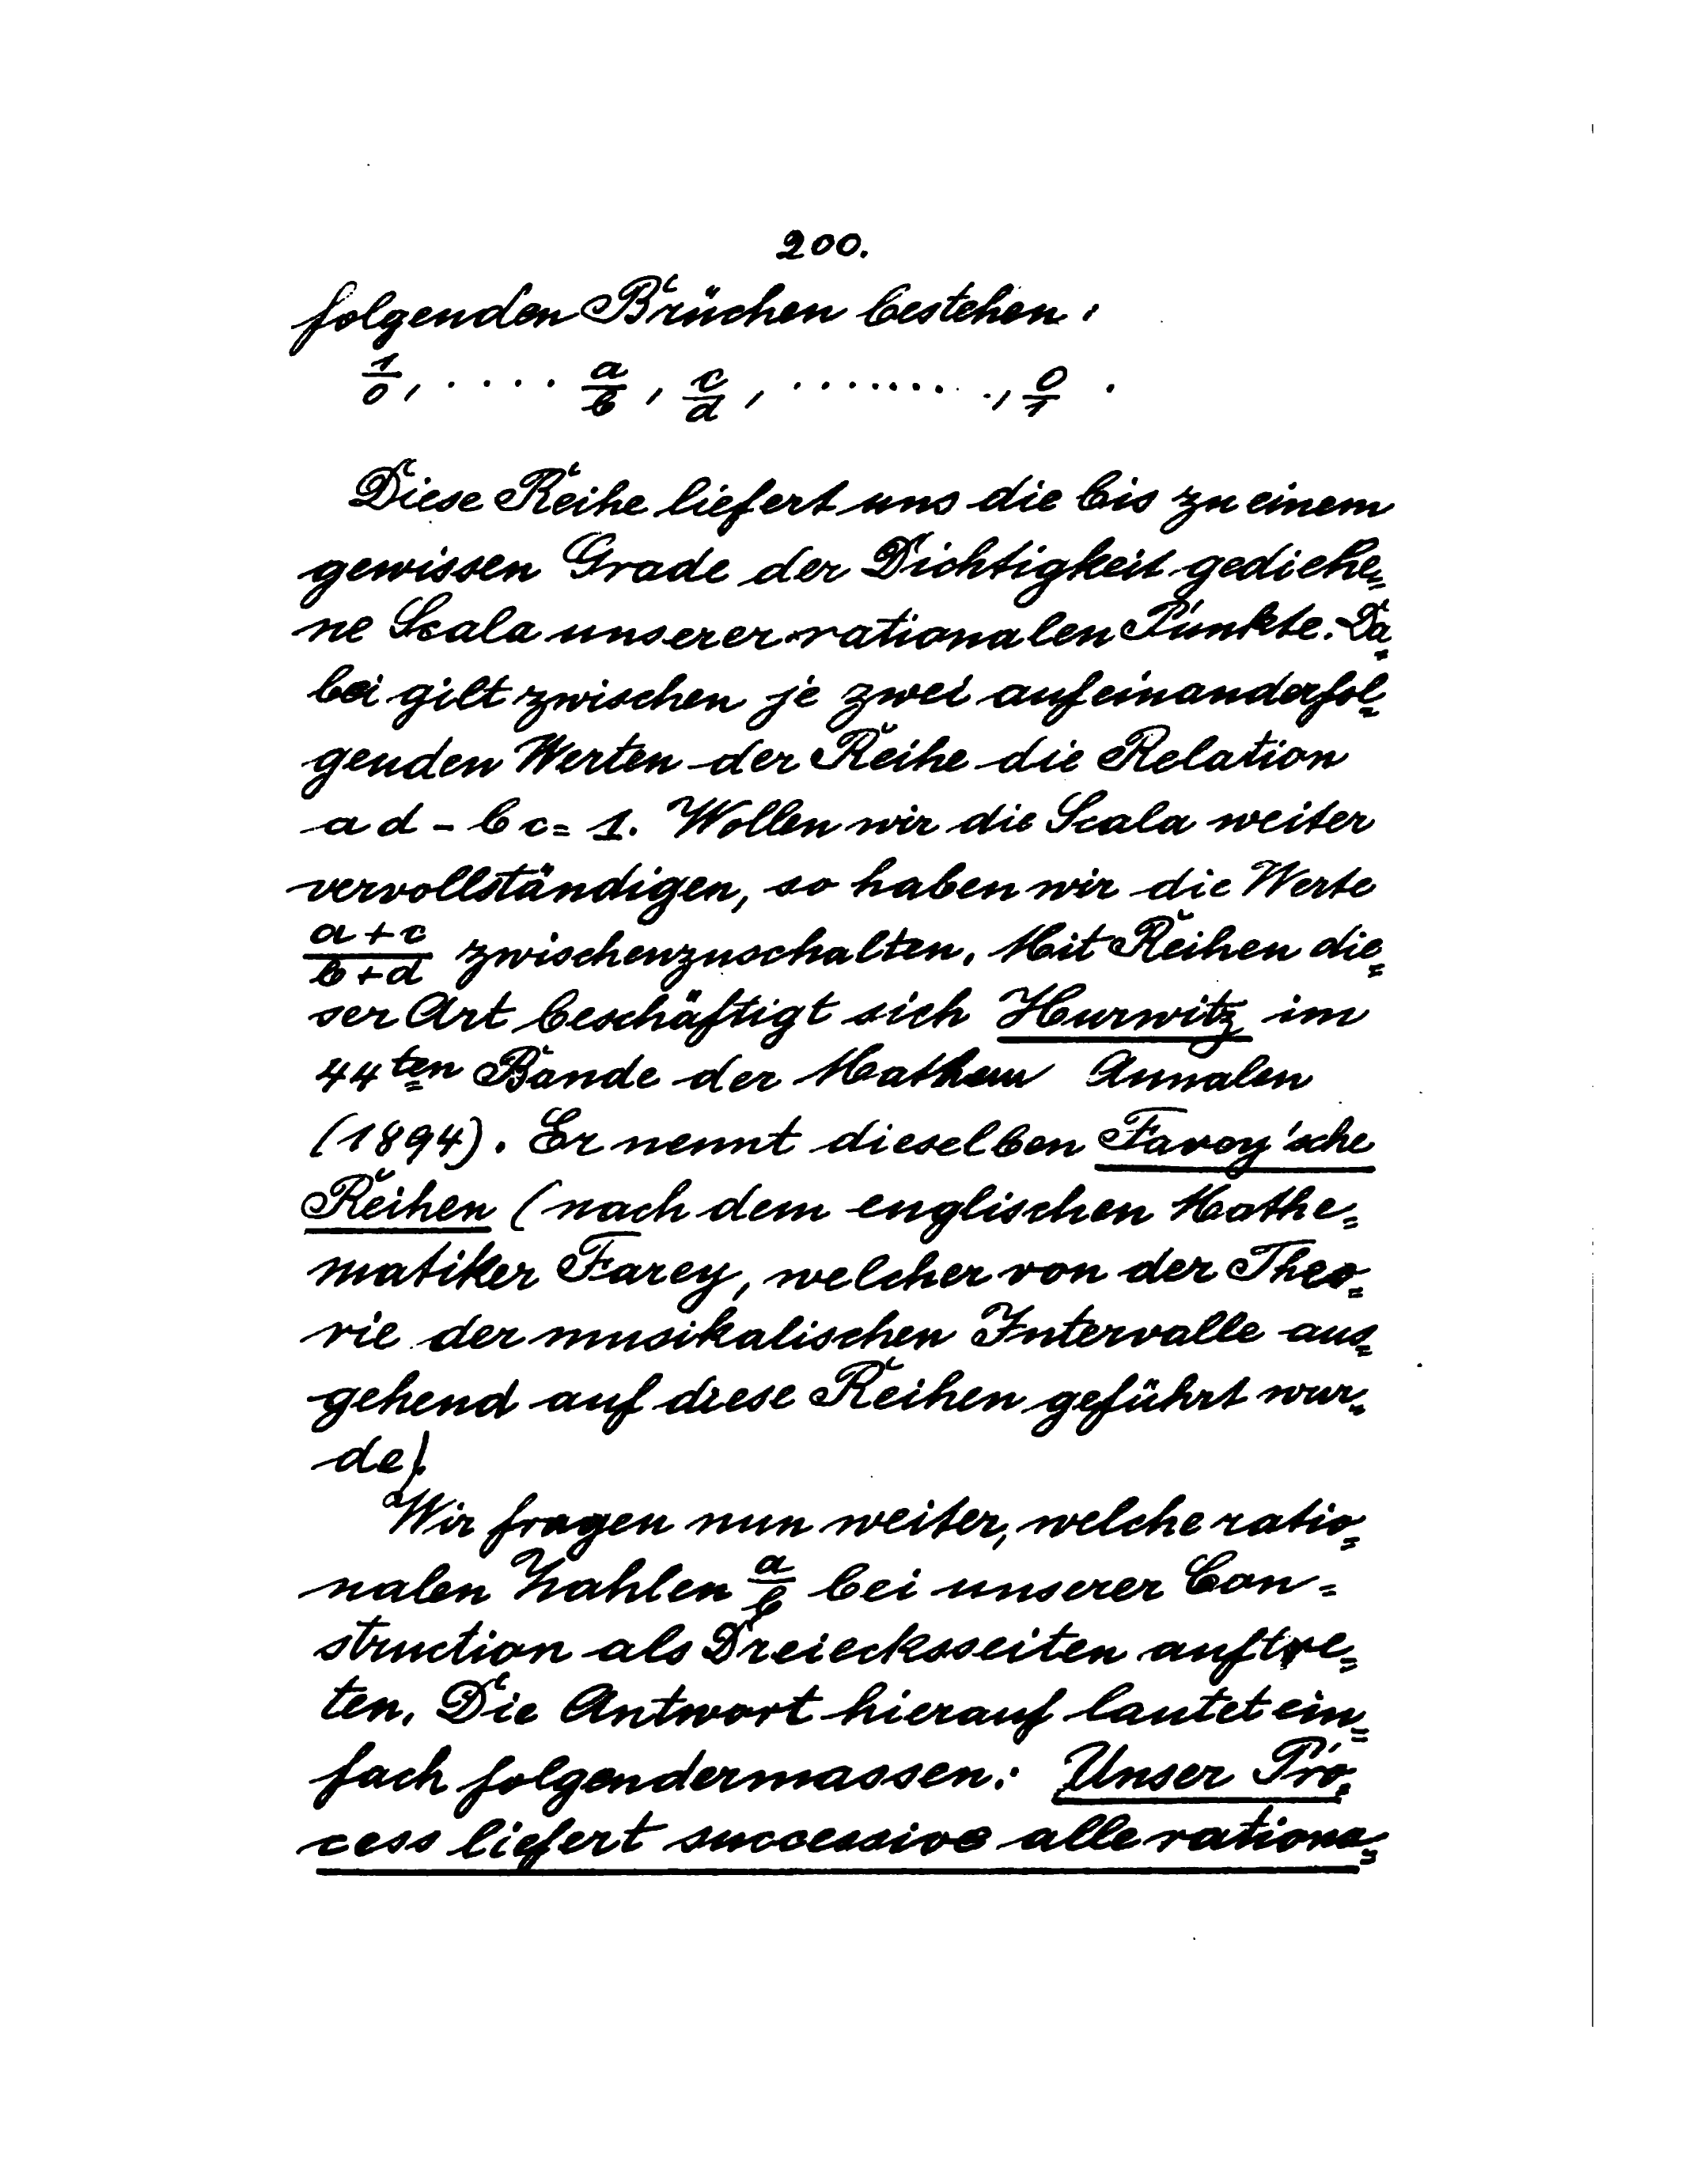 200.
folgenden Brüchen bestehen:
1/0, .... a/b, c/d, .........., 0/1.
Diese Reihe liefert uns die bis zu einem
gewissen Grade der Dichtigkeit gediehe=
ne Scala unserer rationalen Punkte. Da=
bei gilt zwischen je zwei aufeinanderfol=
genden Werten der Reihe die Relation
ad - bc = 1. Wollen wir die Scala weiter
vervollständigen, so haben wir die Werte
a+c/b+d zwischenzuschalten. Mit Reihen die=
ser Art beschäftigt sich Hurwitz im
44ten Bande der Mathem Annalen
(1894). Er nennt dieselben Farey'sche
Reihen (nach dem englischen Mathe=
matiker Farey, welcher von der Theo=
rie der musikalischen Intervalle aus=
gehend auf diese Reihen geführt wur=
de).
Wir fragen nun weiter, welche ratio=
nalen Zahlen a/b bei unserer Con=
struction als Dreiecksseiten auftre=
ten. Die Antwort hierauf lautet ein=
fach folgendermassen: Unser Pro=
cess liefert successive alle rationa=